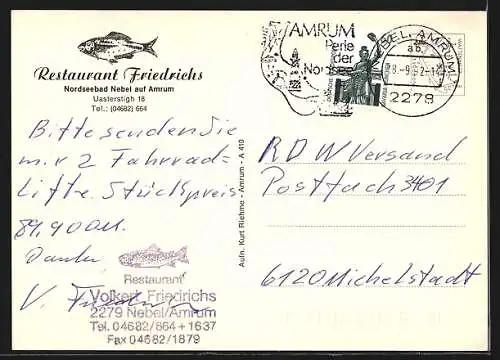 Restaurant Friedrichs
Nordseebad Nebel auf Amrum
Uasterstigh 18
Tel.: (04682) 664
Bitte senden Sie
mir 2 Fahrrad-
lifte. Stückpreis
89,90 DM.
Danke
V. Friedrichs
Restaurant
Volkert Friedrichs
2279 Nebel/Amrum
Tel. 04682/664+1637
Fax 04682/1879
Aufn. Kurt Riehme - Amrum - A 410
AMRUM
Perle
der
Nordsee
NEBEL, AMRUM
ab
2279
RDW Versand
Postfach 3401
6120 Michelstadt